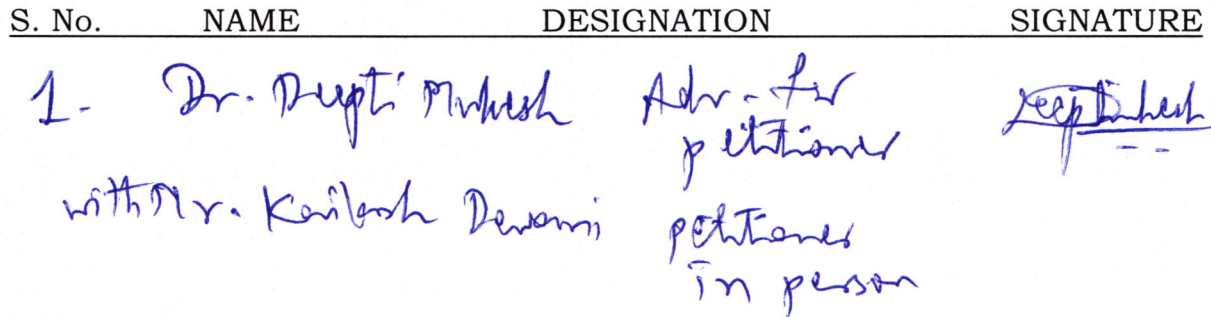 S. No. NAME DESIGNATION SIGNATURE
1- Dr. Deepti Mukesh Adv. for
petitioner
with Mr. Kailash Dewani petitioner
in person